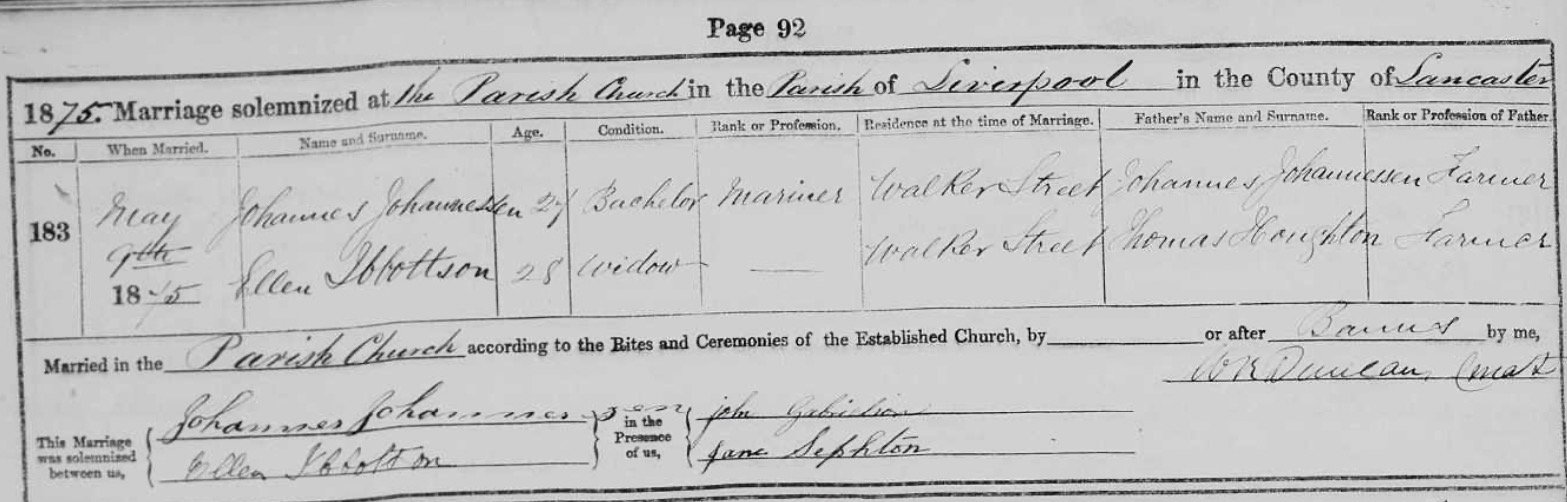 Page 92
1875. Marriage solemnized at the Parish Church in the Parish of Liverpool in the County of Lancaster
No. When Married. Name and Surname. Age. Condition. Rank or Profession. Residence at the time of Marriage. Father's Name and Surname. Rank or Profession of Father.
183 May 9th 1875 Johannes Johannessen 27 Bachelor Mariner Walker Street Johannes Johannessen Farmer
Ellen Ibbottson 28 Widow — Walker Street Thomas Houghton Farmer
Married in the Parish Church according to the Rites and Ceremonies of the Established Church, by or after Banns by me,
Duncan, Curate
This Marriage was solemnized between us, Johannes Johannessen in the Presence of us, John Gabrielson
Ellen Ibbottson Jane Sephton